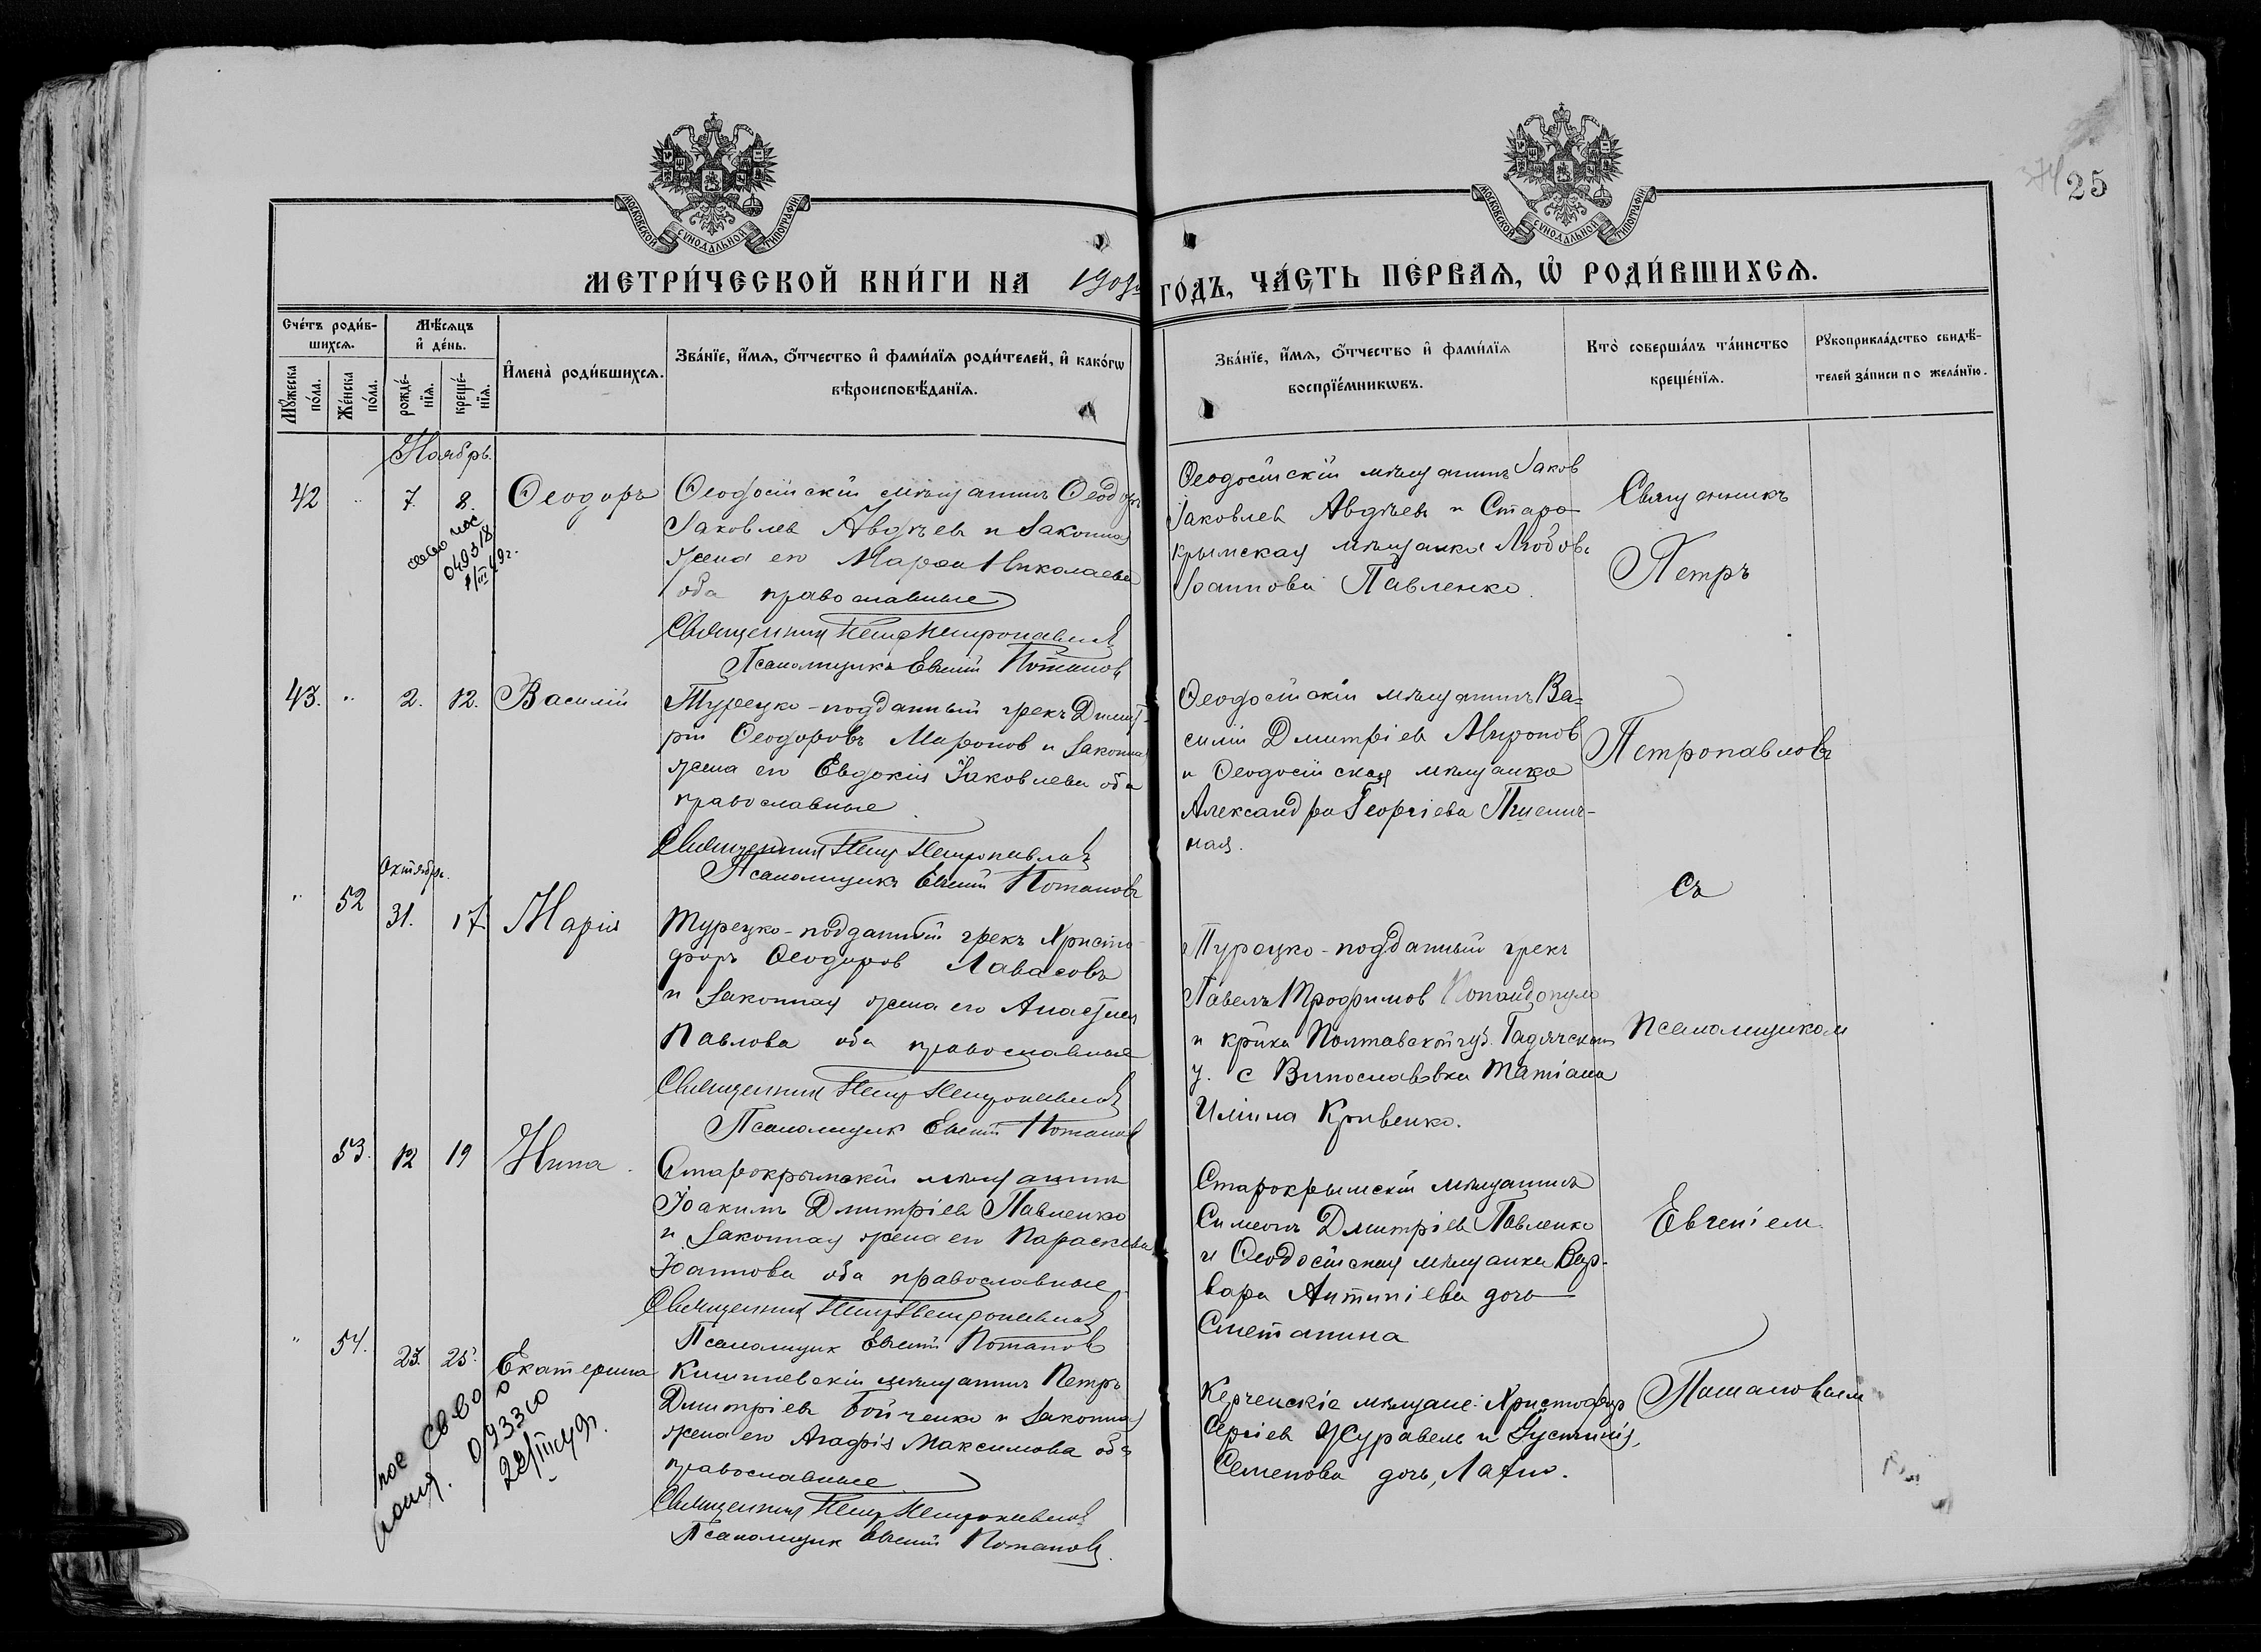 МОСКОВСКОЙ СѴНОДАЛЬНОЙ ТИПОГРАФІИ
МОСКОВСКОЙ СѴНОДАЛЬНОЙ ТИПОГРАФІИ
25
МЕТРИ́ЧЕСКОЙ КНИ́ГИ НА
ГО́ДЪ, ЧА́СТЬ ПЕ́РВАЯ, Ѽ РОДИ́ВШИХСЯ.
Сче́тъ роди́в-
шихся.
Мѣ́сяцъ
и҆ де́нь.
И҆мена̀ роди́вшихся.
Зва́нїе, и҆́мя, ѻ҆́тчество и҆ фами́лїя роди́телей, и҆ како́гѡ
вѣроисповѣ́данїя.
Зва́нїе, и҆́мя, ѻ҆́тчество и҆ фами́лїя
воспрїе́мникѡвъ.
Кто̀ соверша́лъ та́инство
креще́нїя.
Рꙋкоприкла́дство свидѣ́-
телей за́писи по жела́нїю.
Мꙋ́жеска
по́ла.
Же́нска
по́ла.
рожде́-
нїя.
креще́-
нїя.
Ноябрь.
42 " 7. 8. Ѳеодоръ
Ѳеодосійскій мѣщанинъ Ѳеодоръ
Іаковлев Авдѣевъ и законная
жена его Марѳа Николаева
оба православные
Священникъ Петръ Петропавловъ
Псаломщикъ Евгеній Потаповъ
049318
Ѳеодосійскій мѣщанинъ Іаков
Іаковлев Авдѣевъ и Старо
крымская мѣщанка Любовь
Іоаннова Павленко.
Священникъ
Петръ
43. " 2. 12. Василій
Турецко-подданный грекъ Димит-
рій Ѳеодоровъ Миронов и законная
жена его Евдокія Іаковлева оба
православные
Священникъ Петръ Петропавловъ
Псаломщикъ Евгеній Потаповъ
Ѳеодосійскій мѣщанинъ Ва-
силій Дмитріев Миронов
и Ѳеодосійская мѣщанка
Александра Георгіева Пшенич-
ная.
Петропавловъ
Октябрь.
" 52 31. 17 Марія
Турецко-подданный грекъ Христо-
форъ Ѳеодоров Лавасовъ
и законная жена его Анастасія
Павлова оба православные
Священникъ Петръ Петропавловъ
Псаломщик Евгеній Потапов
Турецко-подданный грекъ
Павелъ Трофимов Попандопуло
и кр-нка Полтавской губ. Гадячскаго
у. с Винославовки Татіана
Иліина Кривенко.
Съ
псаломщиком
53. 12 19 Нина.
Старокрымскій мѣщанинъ
Іоакимъ Дмитріев Павленко
и законная жена его Параскева
Іоаннова оба православные
Священникъ Петръ Петропавловъ
Псаломщик Евгеній Потапов
Старокрымскій мѣщанинъ
Симеонъ Дмитріев Павленко
и Ѳеодосійская мѣщанка Вар-
вара Антипіева дочь
Сметанина
Евгеніем
" 54. 23. 25. Екатерина
Кишиневскій мѣщанинъ Петръ
Дмитріевъ Бойченко и законная
жена его Агафія Максимова оба
православные
Священникъ Петръ Петропавловъ
Псаломщик Евгеній Потаповъ.
Керченскіе мѣщане: Христофор
Сергіев Журавель и Іустинія
Семенова дочь, Лахно.
Потаповымъ